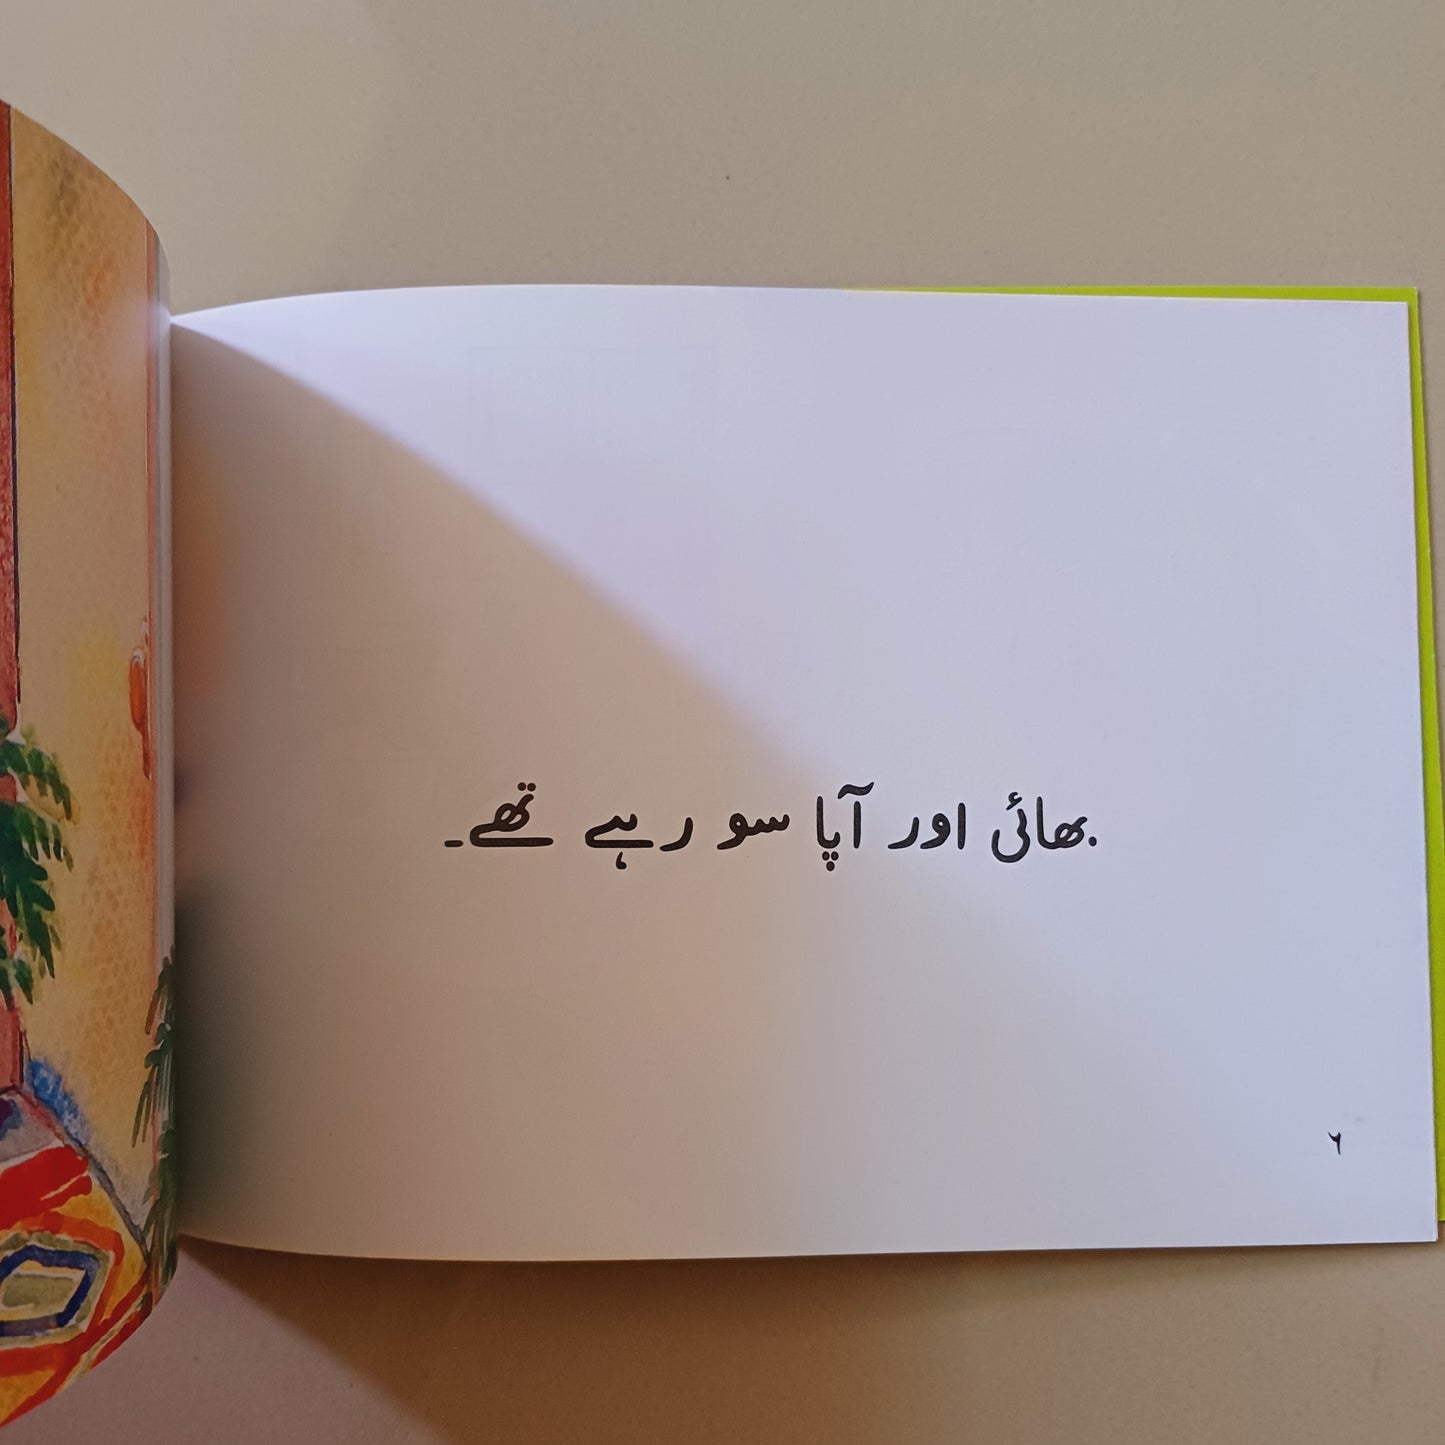 بھائی اور آپا سو رہے تھے۔
۲